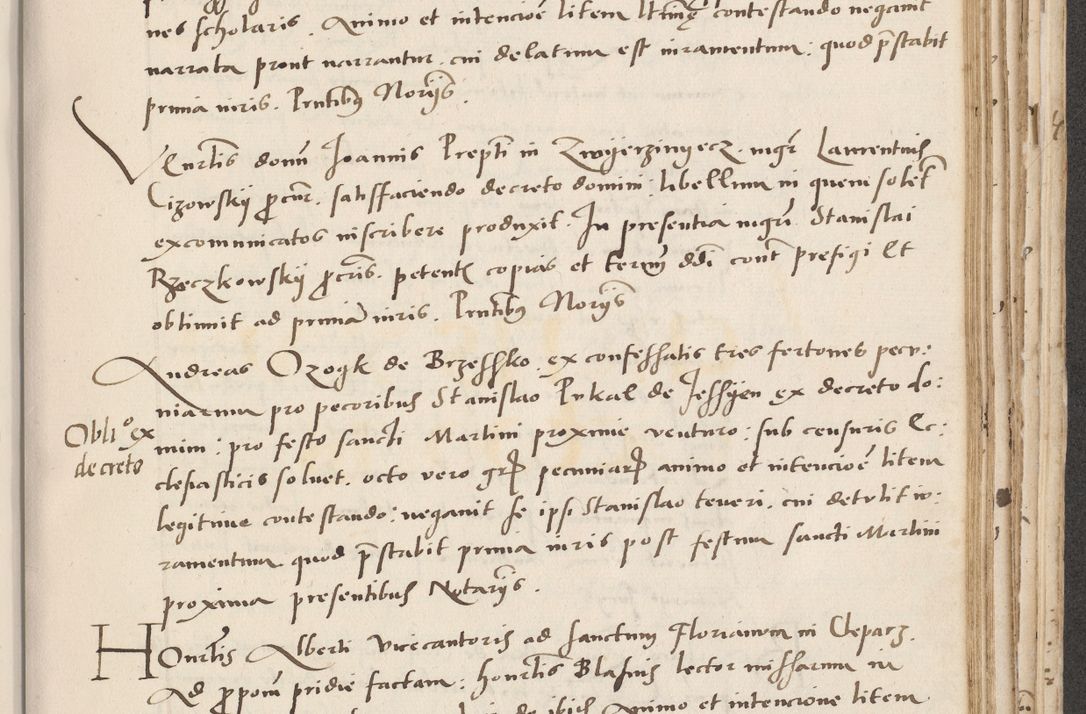 nes scholaris. Animo et intencioē litem ltimę contestando negauit
narrata prout narrantur. cui delatum est iuramentum: quod p̄stabit
prima iuris. Pn̄tibus Norijs.
Venrlis domī Joannis Prepti in Zwyerzinyecz. mgr Laurentius
Cizowskij ꝓcur. satisfaciendo decreto domini libellum in quem solēt
excomunicatos inscribere produxit. In presentia mgri Stanislai
Rzeczkowskij ꝓcris. petentis copias et termī ddi cont prefigi Et
obtinuit ad prima iuris. Pn̄tibus Norijs
Andreas Ozogk de Brzessko. ex confessatis tres fertones pecu:
niarum pro pecoribus Stanislao Pukal de Jessyen ex decreto do:
mini: pro festo sancti Martini proxime venturo: sub censuris Ec:
clesiasticis soluet. octo vero gr pecuniar animo et intencioē litem
legitime contestando: negauit se ipsi Stanislao teneri. cui detulit iu:
ramentum quod p̄stabit prima iuris post festum sancti Martini
proxima presentibus Notarijs.
Oblio ex
decreto
Honrlis Alberti Vicecantoris ad sanctum Florianum in Cleparz.
Ad ꝓpom̄ pridie factam: honrlis Blasius lector missarum in
Animo et intencione litem